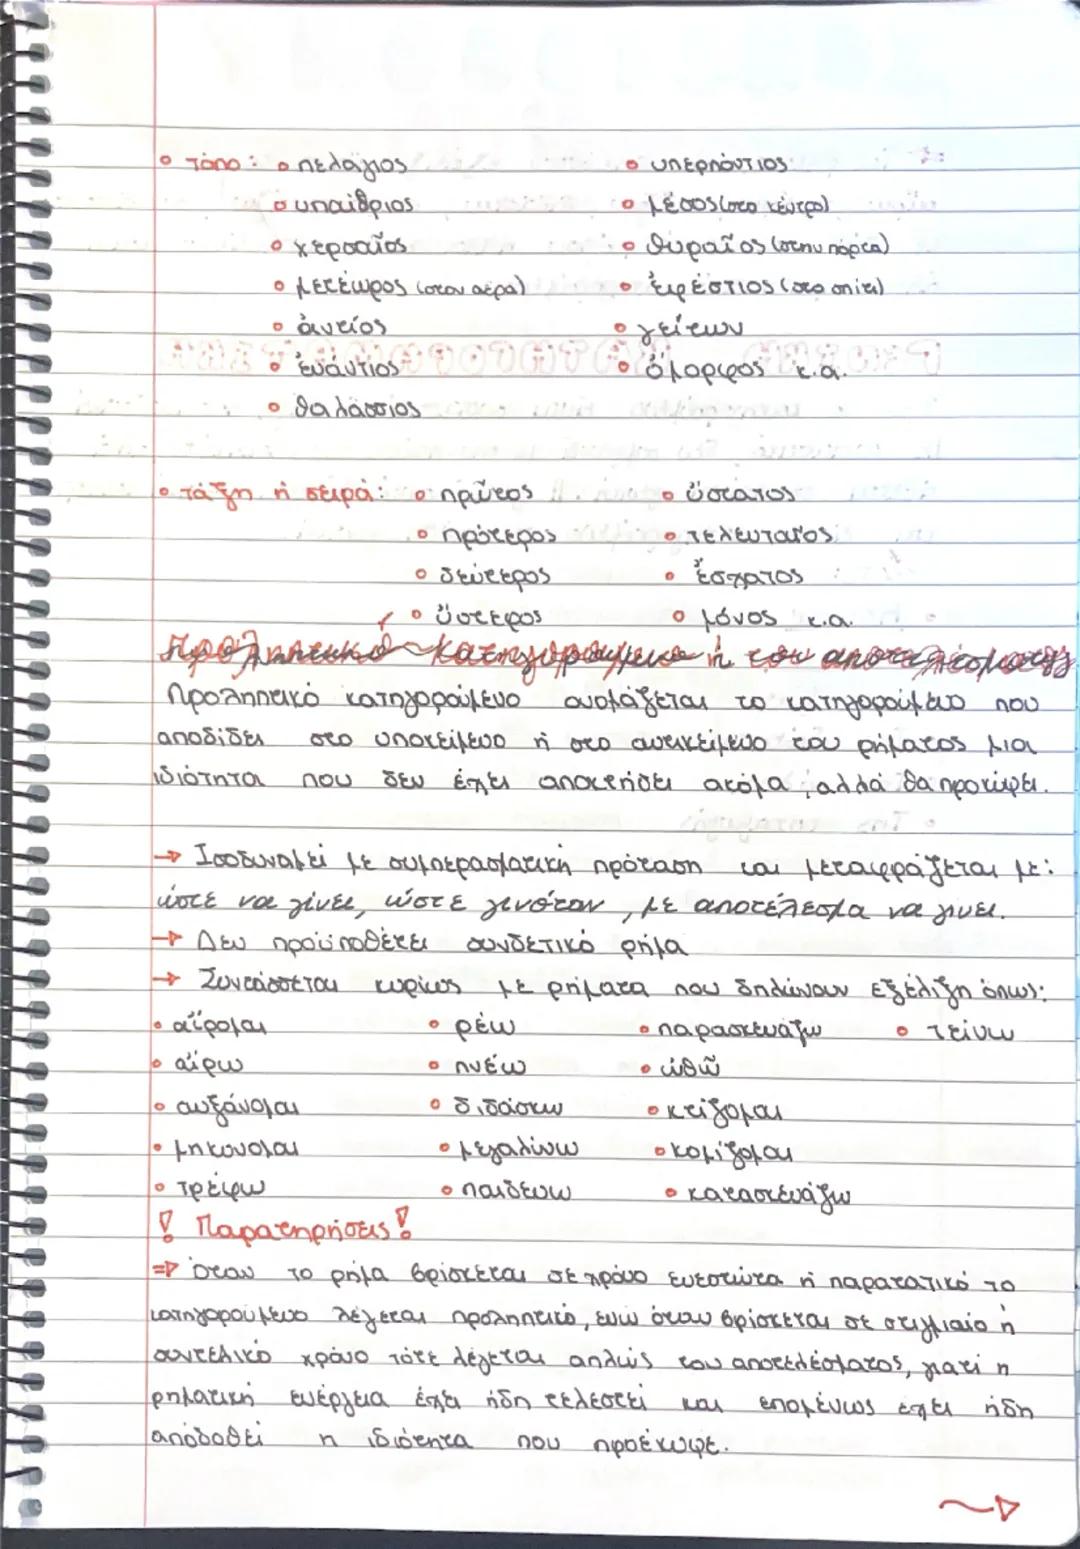 • τόπο: • πελάγιος • υπερπόντιος
• υπαίθριος • μέσος (στο κέντρο)
• χερσαῖος • θυραῖος (στην πόρτα)
• μετέωρος (στον αέρα) • ἐφέστιος (στο σπίτι)
• ἀντίος • γείτων
• ἐνάντιος • ὅμορφος κ.α.
• θαλάσσιος
• τάξη ή σειρά: • πρῶτος • ὕστατος
• πρότερος • τελευταῖος
• δεύτερος • ἔσχατος
• ὕστερος • μόνος κ.α.
Προληπτικό κατηγορούμενο ή του αποτελέσματος
Προληπτικό κατηγορούμενο ονομάζεται το κατηγορούμενο που
αποδίδει στο υποκείμενο ή στο αντικείμενο του ρήματος μια
ιδιότητα που δεν έχει αποκτηθεί ακόμα, αλλά θα προκύψει.
→ Ισοδυναμεί με συμπερασματική πρόταση και μεταφράζεται με:
ώστε να γίνει, ώστε γινόταν, με αποτέλεσμα να γινει.
→ Δεν προϋποθέτει συνδετικό ρήμα
→ Συντάσσεται κυρίως με ρήματα που δηλώνουν εξέλιξη όπως:
• αἴρομαι • ρέω • παρασκευάζω • τείνω
• αἴρω • πνέω • ὠθῶ
• αυξάνομαι • διδάσκω • κτίζομαι
• μηκύνομαι • μεγαλύνω • κομίζομαι
• τρέφω • παιδεύω • κατασκευάζω
! Παρατηρήσεις !
⇒ Όταν το ρήμα βρίσκεται σε χρόνο ενεστώτα ή παρατατικό το
κατηγορούμενο λέγεται προληπτικό, ενώ όταν βρίσκεται σε στιγμιαίο ή
συντελικό χρόνο τότε λέγεται απλώς του αποτελέσματος, γιατί η
ρηματική ενέργεια έχει ήδη τελεστεί και επομένως έχει ήδη
αποδοθεί η ιδιότητα που προέκυψε.